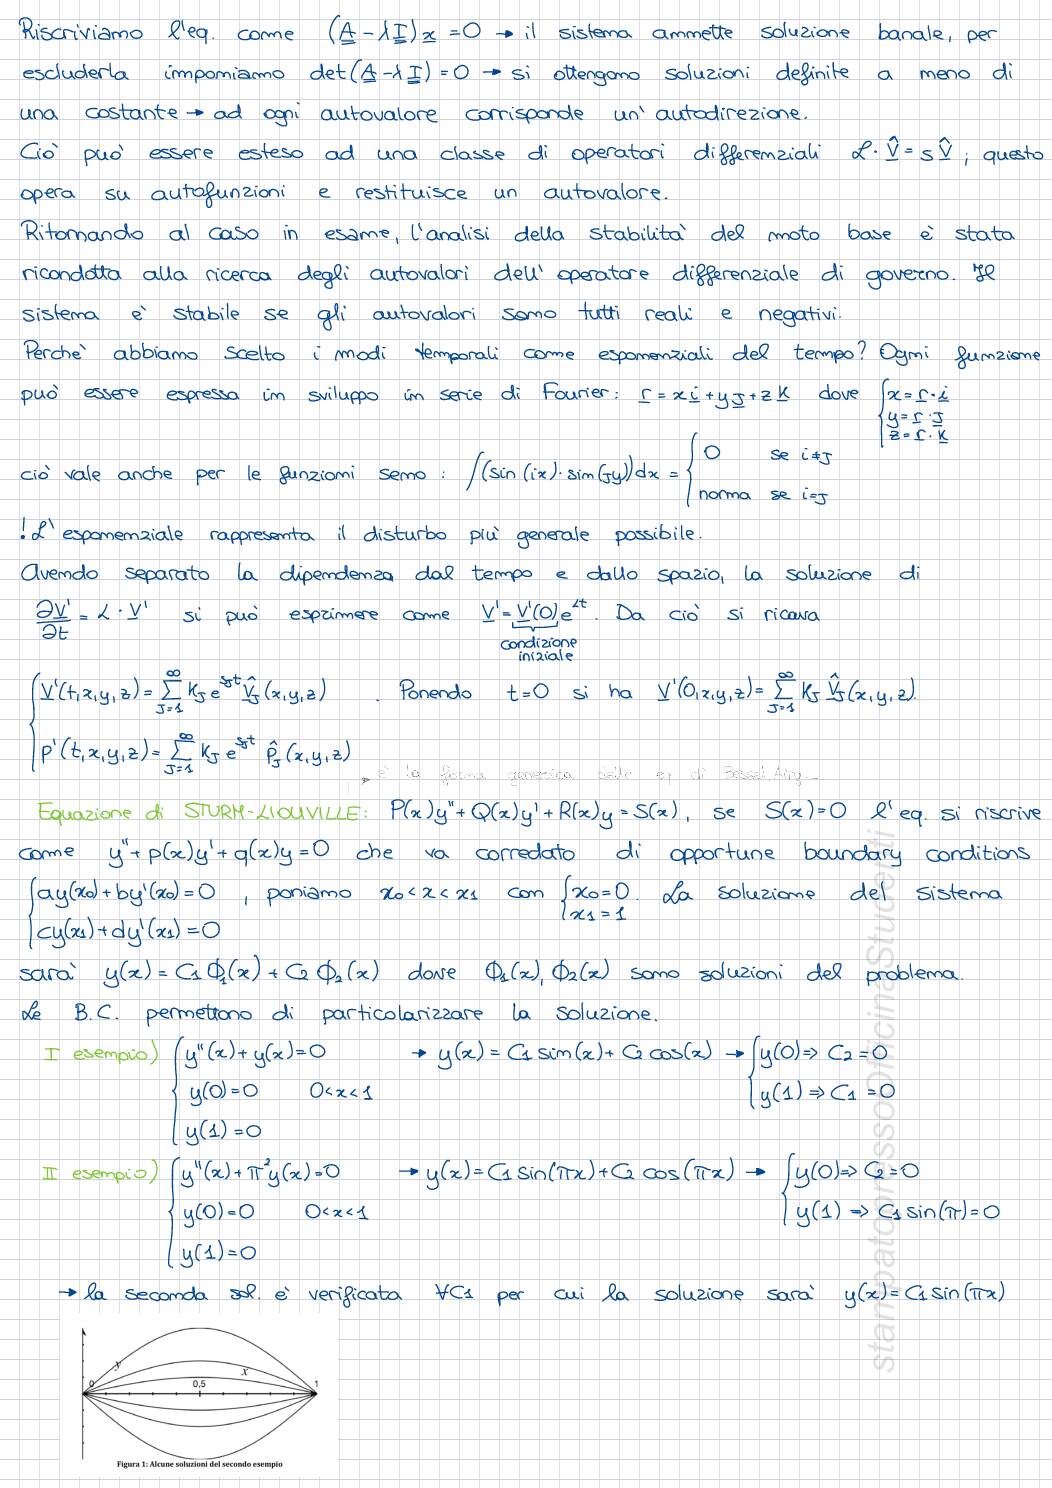 Riscriviamo l'eq. come (A - λI)x = 0 → il sistema ammette soluzione banale, per
escluderla imponiamo det(A - λI) = 0 → si ottengono soluzioni definite a meno di
una costante → ad ogni autovalore corrisponde un' autodirezione.
Ciò può essere esteso ad una classe di operatori differenziali L · V̂ = s V̂ ; questo
opera su autofunzioni e restituisce un autovalore.
Ritornando al caso in esame, l'analisi della stabilità del moto base è stata
ricondotta alla ricerca degli autovalori dell' operatore differenziale di governo. Il
sistema è stabile se gli autovalori sono tutti reali e negativi.
Perchè abbiamo scelto i modi temporali come esponenziali del tempo? Ogni funzione
può essere espressa in sviluppo in serie di Fourier: r = x i + y J + z K dove { x = r · i
y = r · J
z = r · K
ciò vale anche per le funzioni seno : ∫(sin(ix) · sin(Jy))dx = { 0 se i≠J
norma se i=J
! L' esponenziale rappresenta il disturbo più generale possibile.
Avendo separato la dipendenza dal tempo e dallo spazio, la soluzione di
∂V'/∂t = L · V' si può esprimere come V' = V'(0)e^Lt. Da ciò si ricava
condizione
iniziale
{ V'(t,x,y,z) = ∑_{J=1}^∞ K_J e^{s_J t} V̂_J (x,y,z) . Ponendo t=0 si ha V'(0,x,y,z) = ∑_{J=1}^∞ K_J V̂_J (x,y,z).
p'(t,x,y,z) = ∑_{J=1}^∞ K_J e^{s_J t} p̂_J (x,y,z)
è la forma generica delle eq di Bessel, Airy...
Equazione di STURM-LIOUVILLE: P(x)y'' + Q(x)y' + R(x)y = S(x), se S(x)=0 l'eq. si riscrive
come y'' + p(x)y' + q(x)y = 0 che va corredato di opportune boundary conditions
{ ay(x0) + by'(x0) = 0 , poniamo x0 < x < x1 con { x0 = 0. La soluzione del sistema
cy(x1) + dy'(x1) = 0 x1 = 1
sarà y(x) = C1 Φ1(x) + C2 Φ2(x) dove Φ1(x), Φ2(x) sono soluzioni del problema.
Le B.C. permettono di particolarizzare la soluzione.
I esempio) { y''(x) + y(x) = 0 → y(x) = C1 sin(x) + C2 cos(x) → { y(0) ⇒ C2 = 0
y(0) = 0 0<x<1 y(1) ⇒ C1 = 0
y(1) = 0
II esempio) { y''(x) + π²y(x) = 0 → y(x) = C1 sin(πx) + C2 cos(πx) → { y(0) ⇒ C2 = 0
y(0) = 0 0<x<1 y(1) ⇒ C1 sin(π) = 0
y(1) = 0
→ la seconda sol. è verificata ∀C1 per cui la soluzione sarà y(x) = C1 sin(πx)
y
x
0 0,5 1
Figura 1: Alcune soluzioni del secondo esempio
stampatopressoOfficinaStudenti